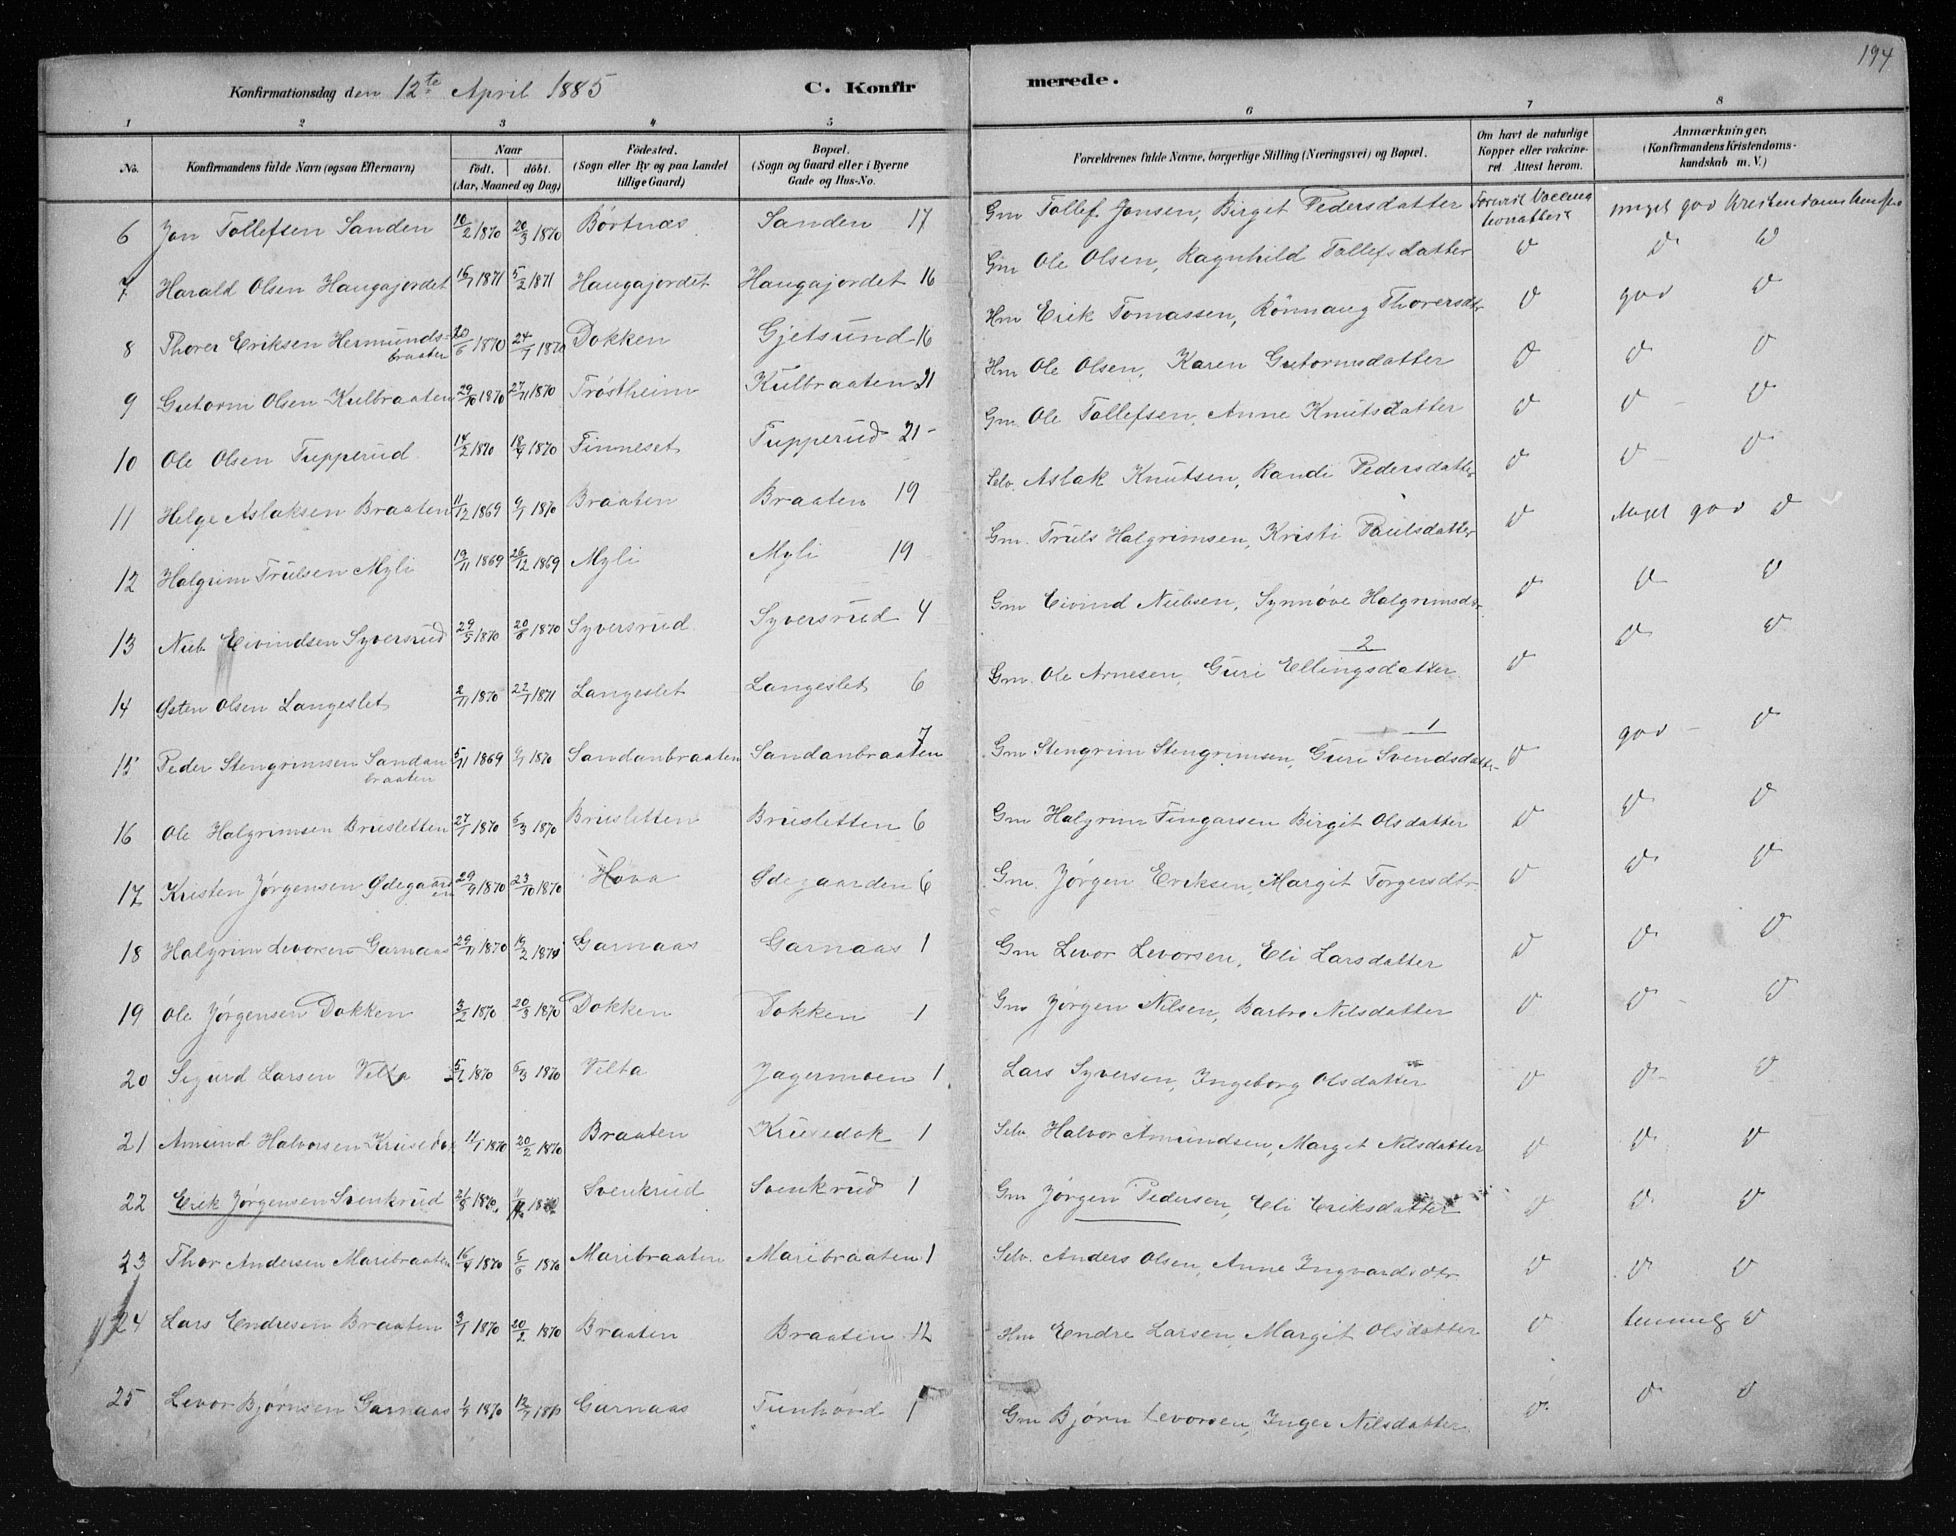 194
Konfirmationsdag den 12te April 1885 C. Konfir merede.
1 2 3 4 5 6 7 8
No. Konfirmandens fulde Navn (ogsaa Efternavn) Naar födt. döbt. (Aar, Maaned og Dag) Födested. (Sogn eller By og paa Landet tillige Gaard) Bopæl. (Sogn og Gaard eller i Byerne Gade og Hus-No. Forældrenes fulde Navne, borgerlige Stilling (Næringsvei) og Bopæl. Om havt de naturlige Kopper eller vakcineret Attest herom. Anmærkninger. (Konfirmandens Kristendomskundskab m. V.)
6 Jon Tollefsen Sanden 10/2 1870 20/3 1870 Börtnæs Sanden 17 Gm Tollef Jonsen, Birget Pedersdatter meget god
7 Harald Olsen Haugajordet 15/1 1871 5/2 1871 Haugajordet Haugajordet 16 Gm Ole Olsen, Ragnhild Tollefsdatter
8 Thorer Eriksen Hermundsbraaten 20/6 1870 24/7 1870 Dokken Gjetsund 16 Hm Erik Tomassen, Rönnaug Thorersdtr god
9 Gutorm Olsen Kulbraaten 29/10 1870 27/11 1870 Tröstheim Kulbraaten 21 Hm Ole Olsen, Karen Gutormsdatter
10 Ole Olsen Tupperud 14/2 1870 18/4 1870 Finneset Tupperud 21 Gm. Ole Tollefsen, Anne Knutsdatter
11 Helge Aslaksen Braaten 11/12 1869 9/1 1870 Braaten Braaten 19 Selv. Aslak Knutsen, Randi Pedersdatter
12 Halgrim Trulsen Myli 19/11 1869 26/12 1869 Myli Myli 19 Gm. Truls Halgrimsen, Kristi Paulsdatter Meget god
13 Nub Eivindsen Syversrud 29/5 1870 20/8 1870 Syversrud Syversrud 4 Gm Eivind Nubsen, Synnöve Halgrimsdtr
14 Østen Olsen Langeslet 2/11 1870 22/1 1871 Langeslet Langeslet 6 Gm. Ole Arnesen, Guri Ellingsdatter 2
15 Peder Stengrimsen Sandanbraaten 5/11 1869 9/1 1870 Sandanbraaten Sandanbraaten 7 Gm Stengrim Stengrimsen, Guri Svendsdatter 1 god
16 Ole Halgrimsen Brusletten 27/1 1870 6/3 1870 Brusletten Brusletten 6 Gm Halgrim Fingarsen Birgit Olsdatter
17 Kristen Jørgensen Ødegaarden 29/9 1870 23/10 1870 Hova Ødegaarden 6 Gm. Jørgen Eriksen, Margit Torgersdtr
18 Halgrim Levorsen Garnaas 29/11 1870 19/2 1871 Garnaas Garnaas 1 Gm Levor Levorsen, Eli Larsdatter
19 Ole Jørgensen Dokken 3/2 1870 20/3 1870 Dokken Dokken 1 Gm Jørgen Nilsen, Barbro Nilsdatter
20 Sigurd Larsen Velta 5/2 1870 6/3 1870 Velta Jagermoen 1 Lars Syversen, Ingeborg Olsdatter
21 Amund Halvorsen Krusedok 11/1 1870 20/2 1870 Braaten Krusedok 1 Selv Halvor Amundsen, Marget Nilsdatter
22 Erik Jørgensen Svenkrud 21/8 1870 Svenkrud Svenkrud 1 Gm Jørgen Pedersen, Eli Eriksdatter
23 Thor Andersen Maribraaten 16/4 1870 6/6 1870 Maribraaten Maribraaten 1 Selv. Anders Olsen, Anne Ingvardsdtr
24 Lars Endresen Braaten 3/1 1870 20/2 1870 Braaten Braaten 12 Hm Endre Larsen, Margit Olsdatter temmelig
25 Levor Bjørnsen Garnaas 1870 1870 Garnaas Tunhövd 1 Gm Bjørn Levorsen, Inger Nilsdatter